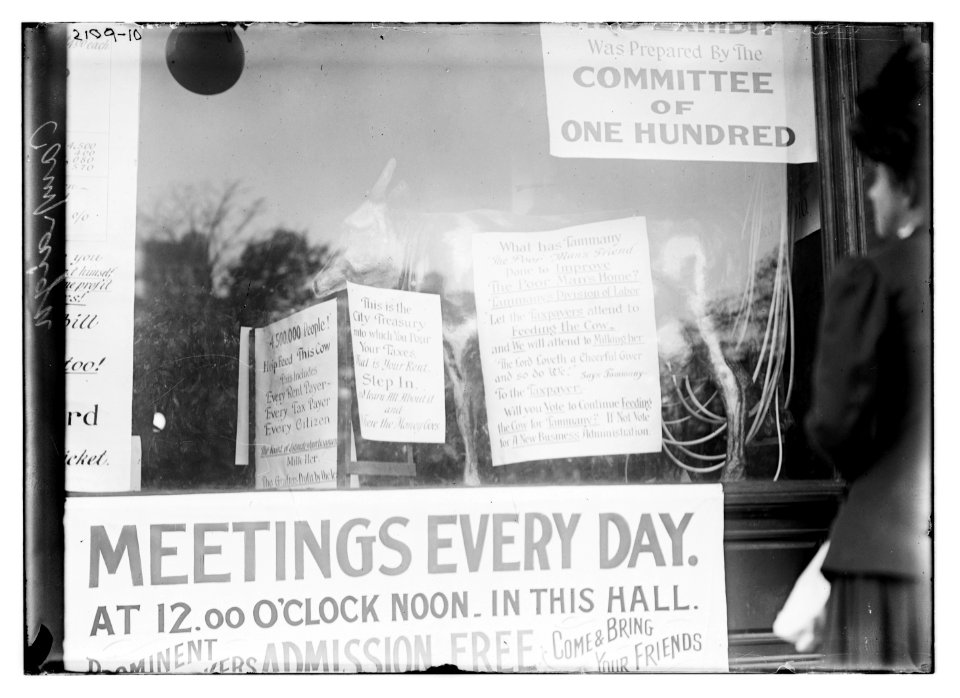 2109-10
Campaign
each
4,500
you
himself
Bill
too!
rd
icket.
Was Prepared By The
COMMITTEE
OF
ONE HUNDRED
4,500,000 People!
Help Feed This Cow
This Includes
Every Rent Payer-
Every Tax Payer
Every Citizen
Milk Her.
This is the
City Treasury
into which You Pour
Your Taxes.
That is Your Rent.
Step In.
Learn All About it
and
How the Money Goes
What has Tammany
The Poor Man's Friend
Done to Improve
The Poor Man's Home?
Tammany's Division of Labor
'Let the Taxpayers attend to
Feeding the Cow,
and We will attend to Milking her.
'The Lord Loveth a Cheerful Giver
and so do We.' Says Tammany
To the Taxpayer:
Will you Vote to Continue Feeding
the Cow for Tammany? If Not Vote
for A New Business Administration.
MEETINGS EVERY DAY.
AT 12.00 O'CLOCK NOON - IN THIS HALL.
PROMINENT
KERS ADMISSION FREE
COME & BRING
YOUR FRIENDS